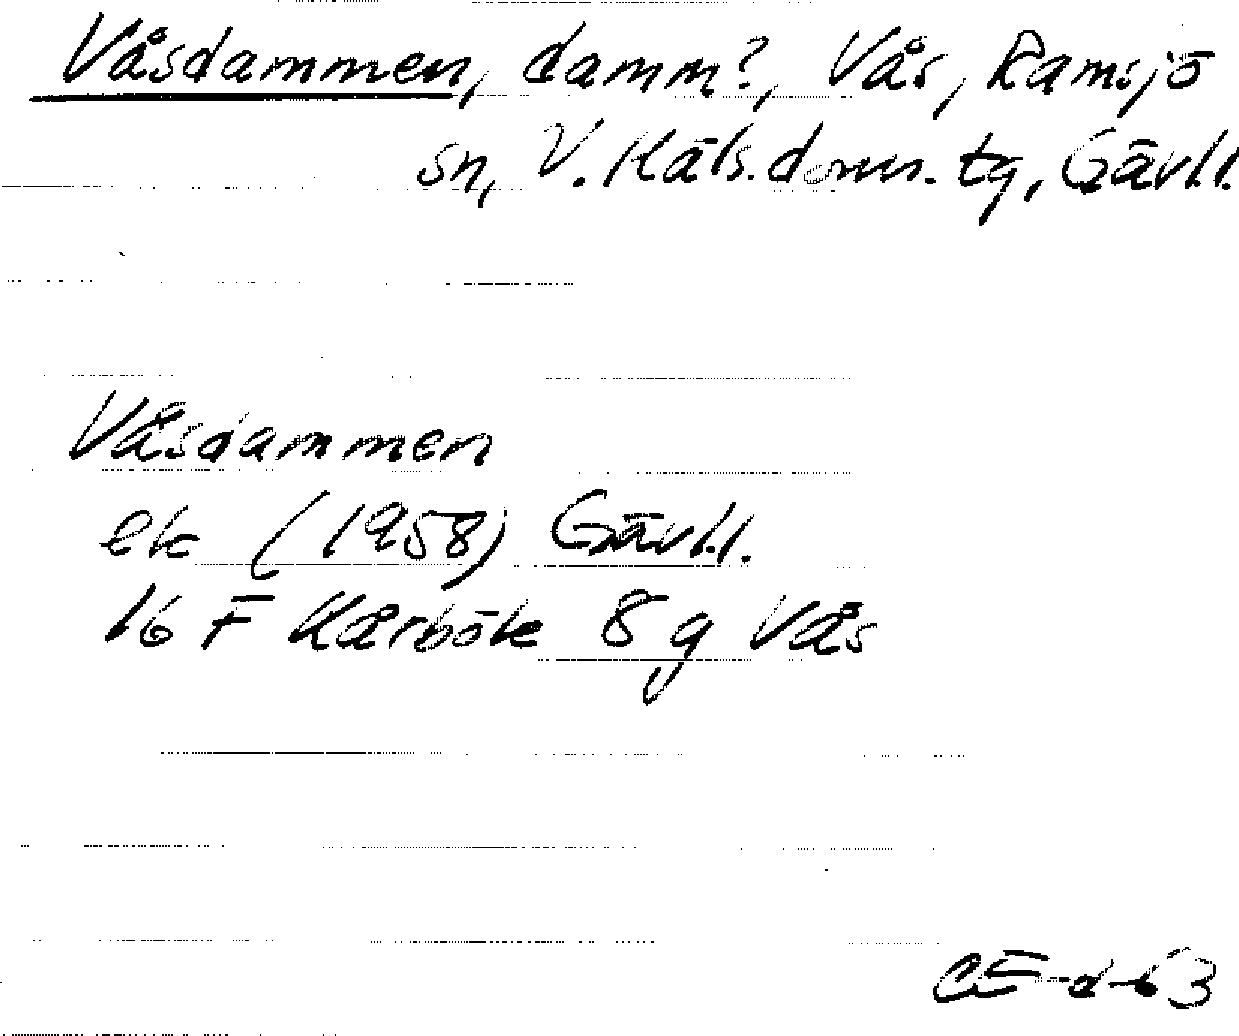 Våsdammen, damm?, Vås, Ramsjö
sn, V. Häls. doms. tg, Gävl.l.
Våsdammen
ek (1958) Gävl.l.
16 F Kårböle 8 g Vås
CE-d-63